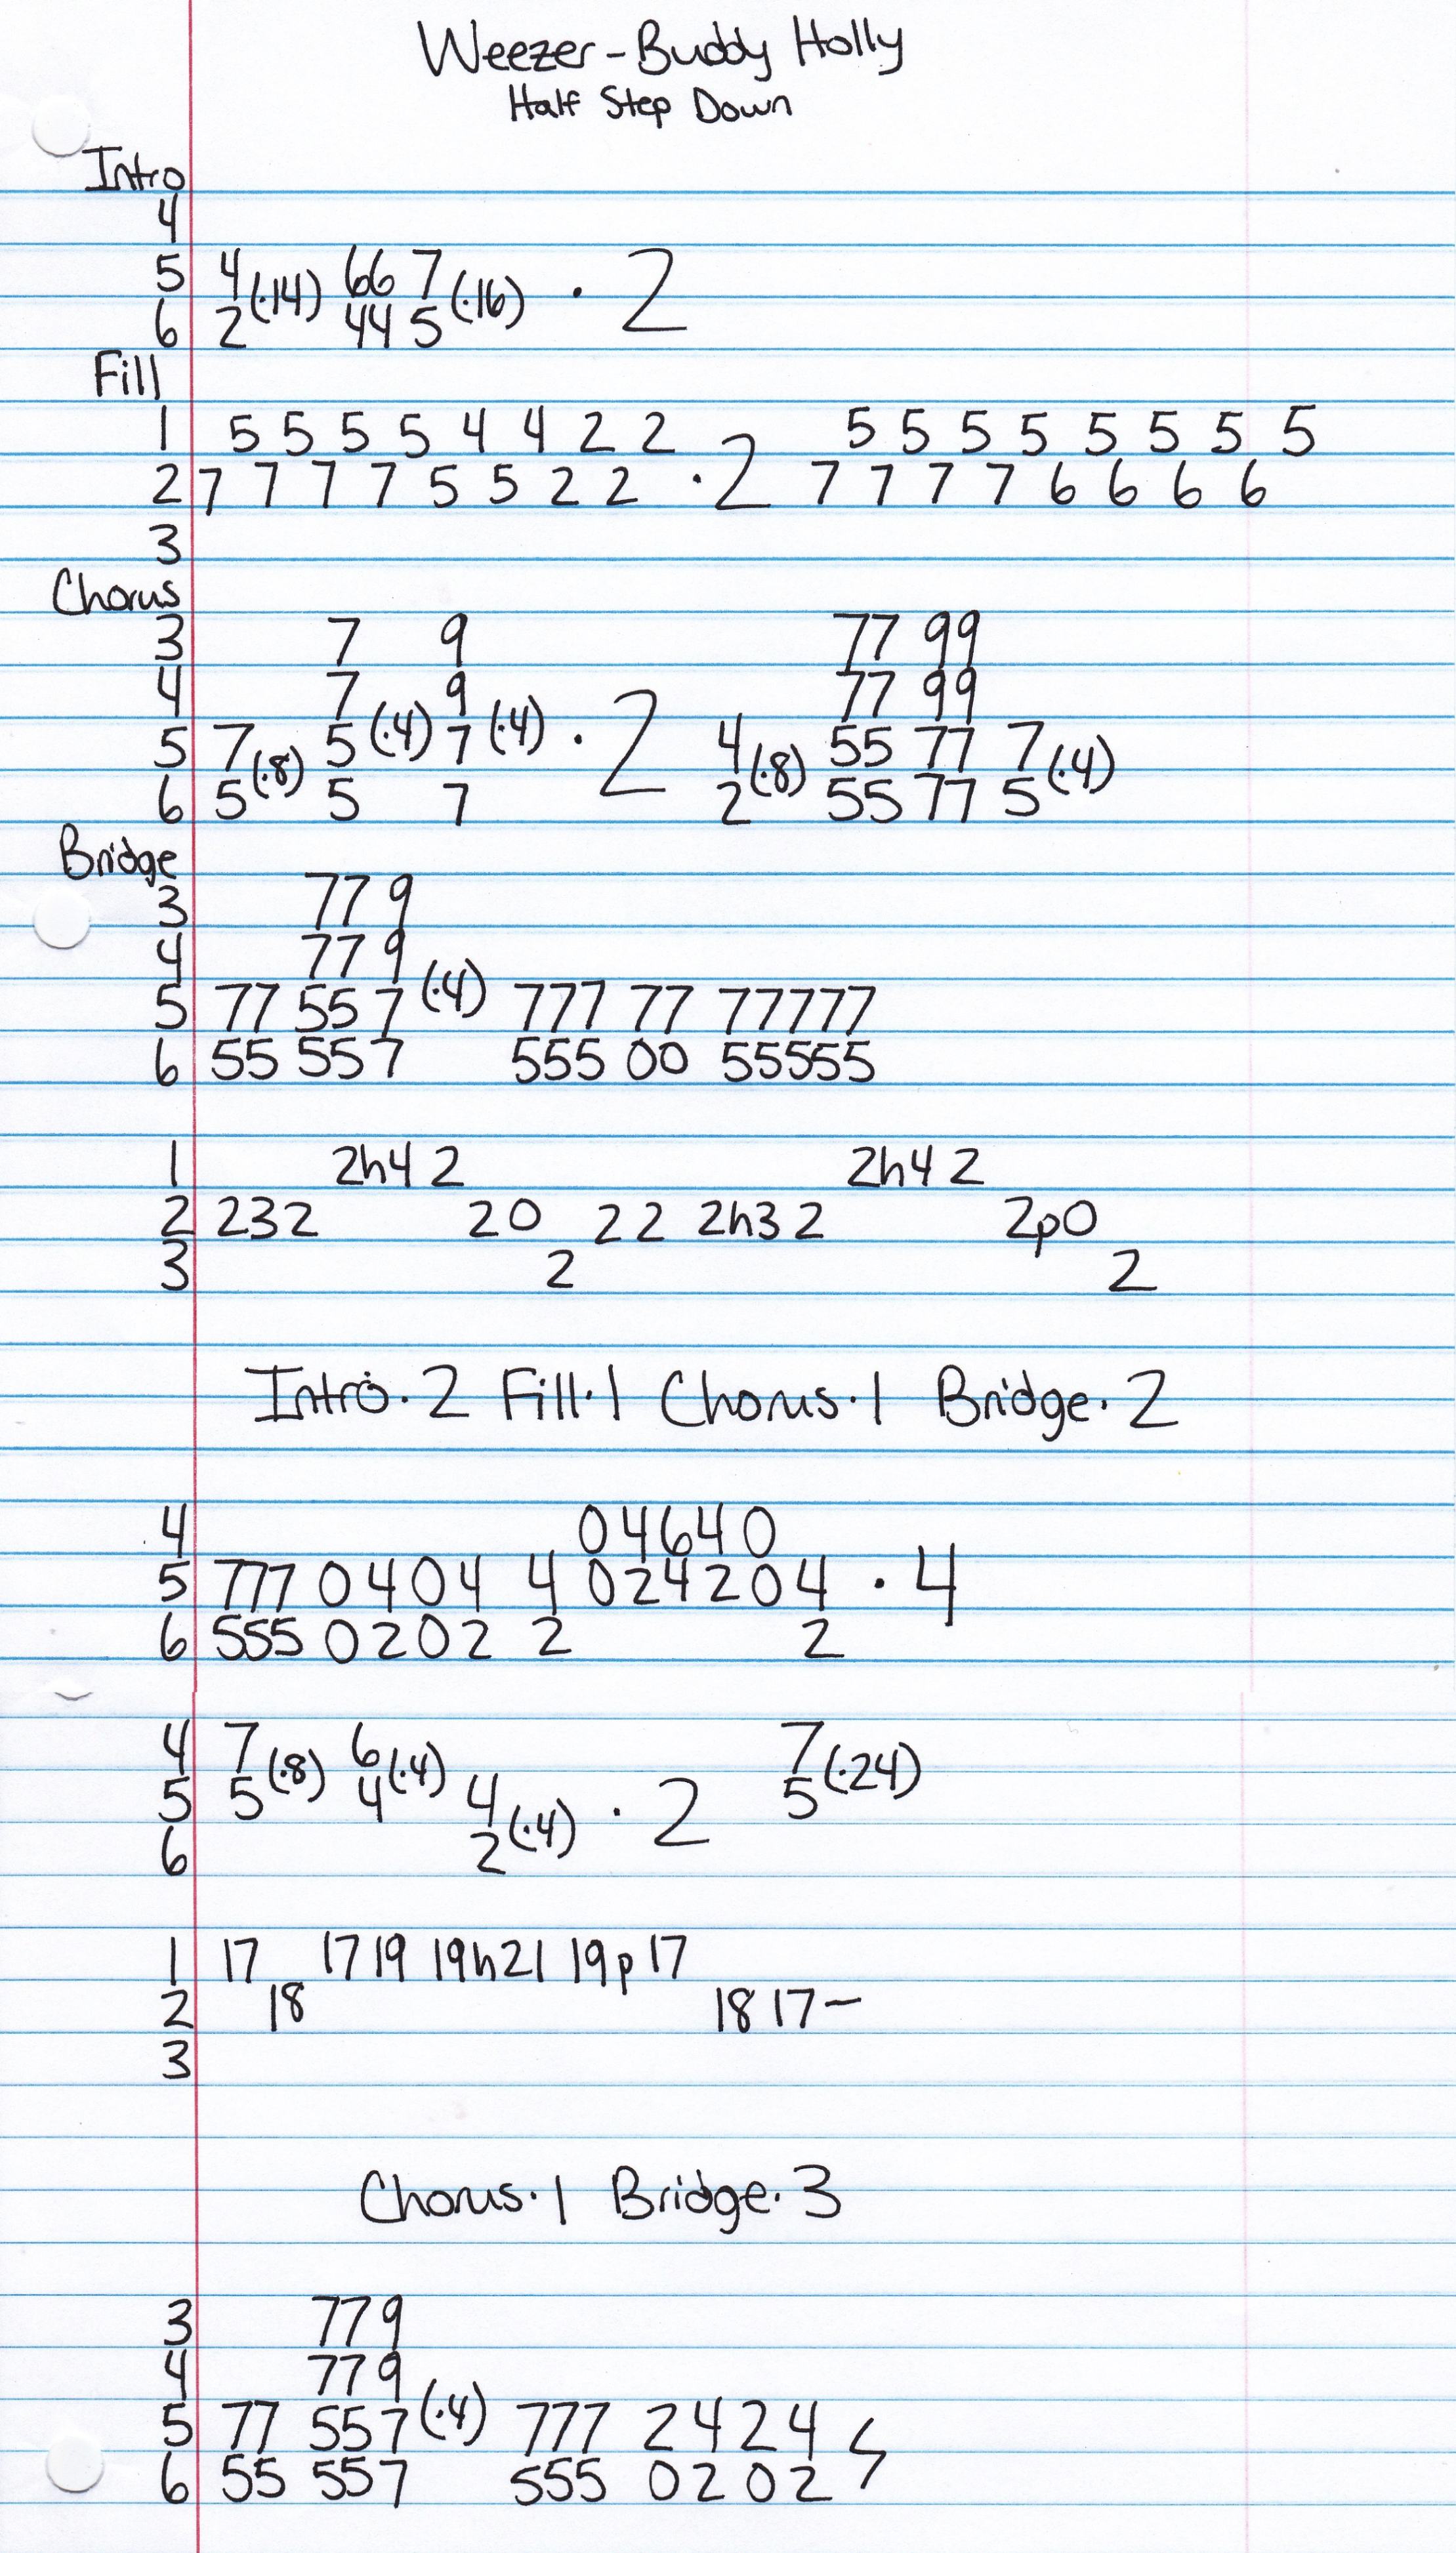 Weezer - Buddy Holly
Half Step Down
Intro
4
5 4 (·14) 66 7 (·16) · 2
6 2 44 5
Fill
1 5 5 5 5 4 4 2 2 5 5 5 5 5 5 5 5
2 7 7 7 7 5 5 2 2 · 2 7 7 7 7 6 6 6 6
3
Chorus
3 7 9 77 99
4 7 9 77 99
5 7 (·8) 5 (·4) 7 (·4) · 2 4 (·8) 55 77 7 (·4)
6 5 5 7 2 55 77 5
Bridge
3 77 9
4 77 9
5 77 55 7 (·4) 777 77 77777
6 55 55 7 555 00 55555
1 2h4 2 2h4 2
2 232 20 22 2h3 2 2p0
3 2 2
Intro · 2 Fill · 1 Chorus · 1 Bridge · 2
4 0 4 6 4 0
5 777 0 4 0 4 4 0 2 4 2 0 4 · 4
6 555 0 2 0 2 2 2
4 7 (·8) 6 (·4) 7 (·24)
5 5 4 4 (·4) · 2 5
6 2
1 17 17 19 19h21 19p17
2 18 18 17—
3
Chorus · 1 Bridge · 3
3 77 9
4 77 9
5 77 55 7 (·4) 777 2 4 2 4
6 55 55 7 555 0 2 0 2